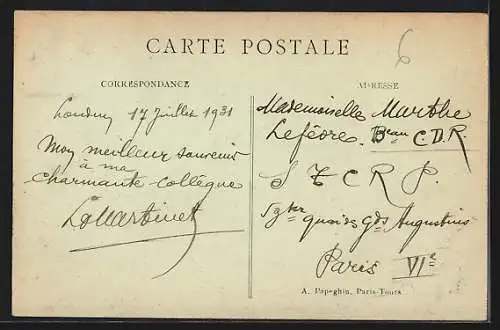 6
CARTE POSTALE
CORRESPONDANCE
ADRESSE
17 Juillet 1931
Mon meilleur souvenir
à ma
charmante collègue
Mademoiselle Marthe
Lefèvre. Beau C.D.R
S T C R P.
quai des Gds Augustins
Paris VIe
A. Papeghin, Paris-Tours